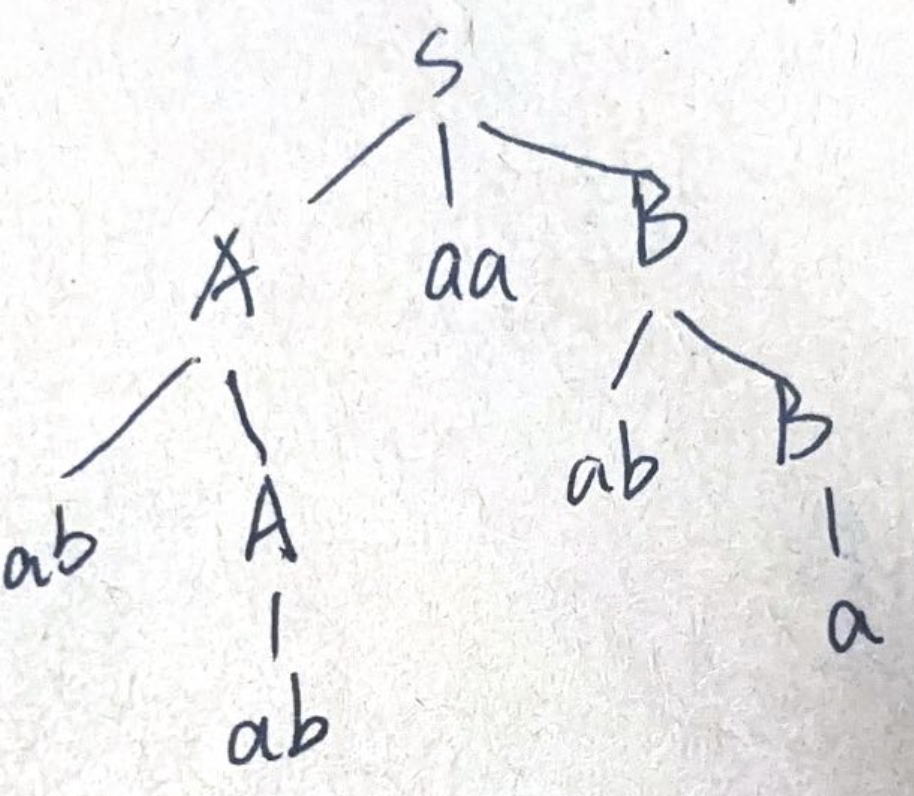 S
A aa B
ab A ab B
ab a